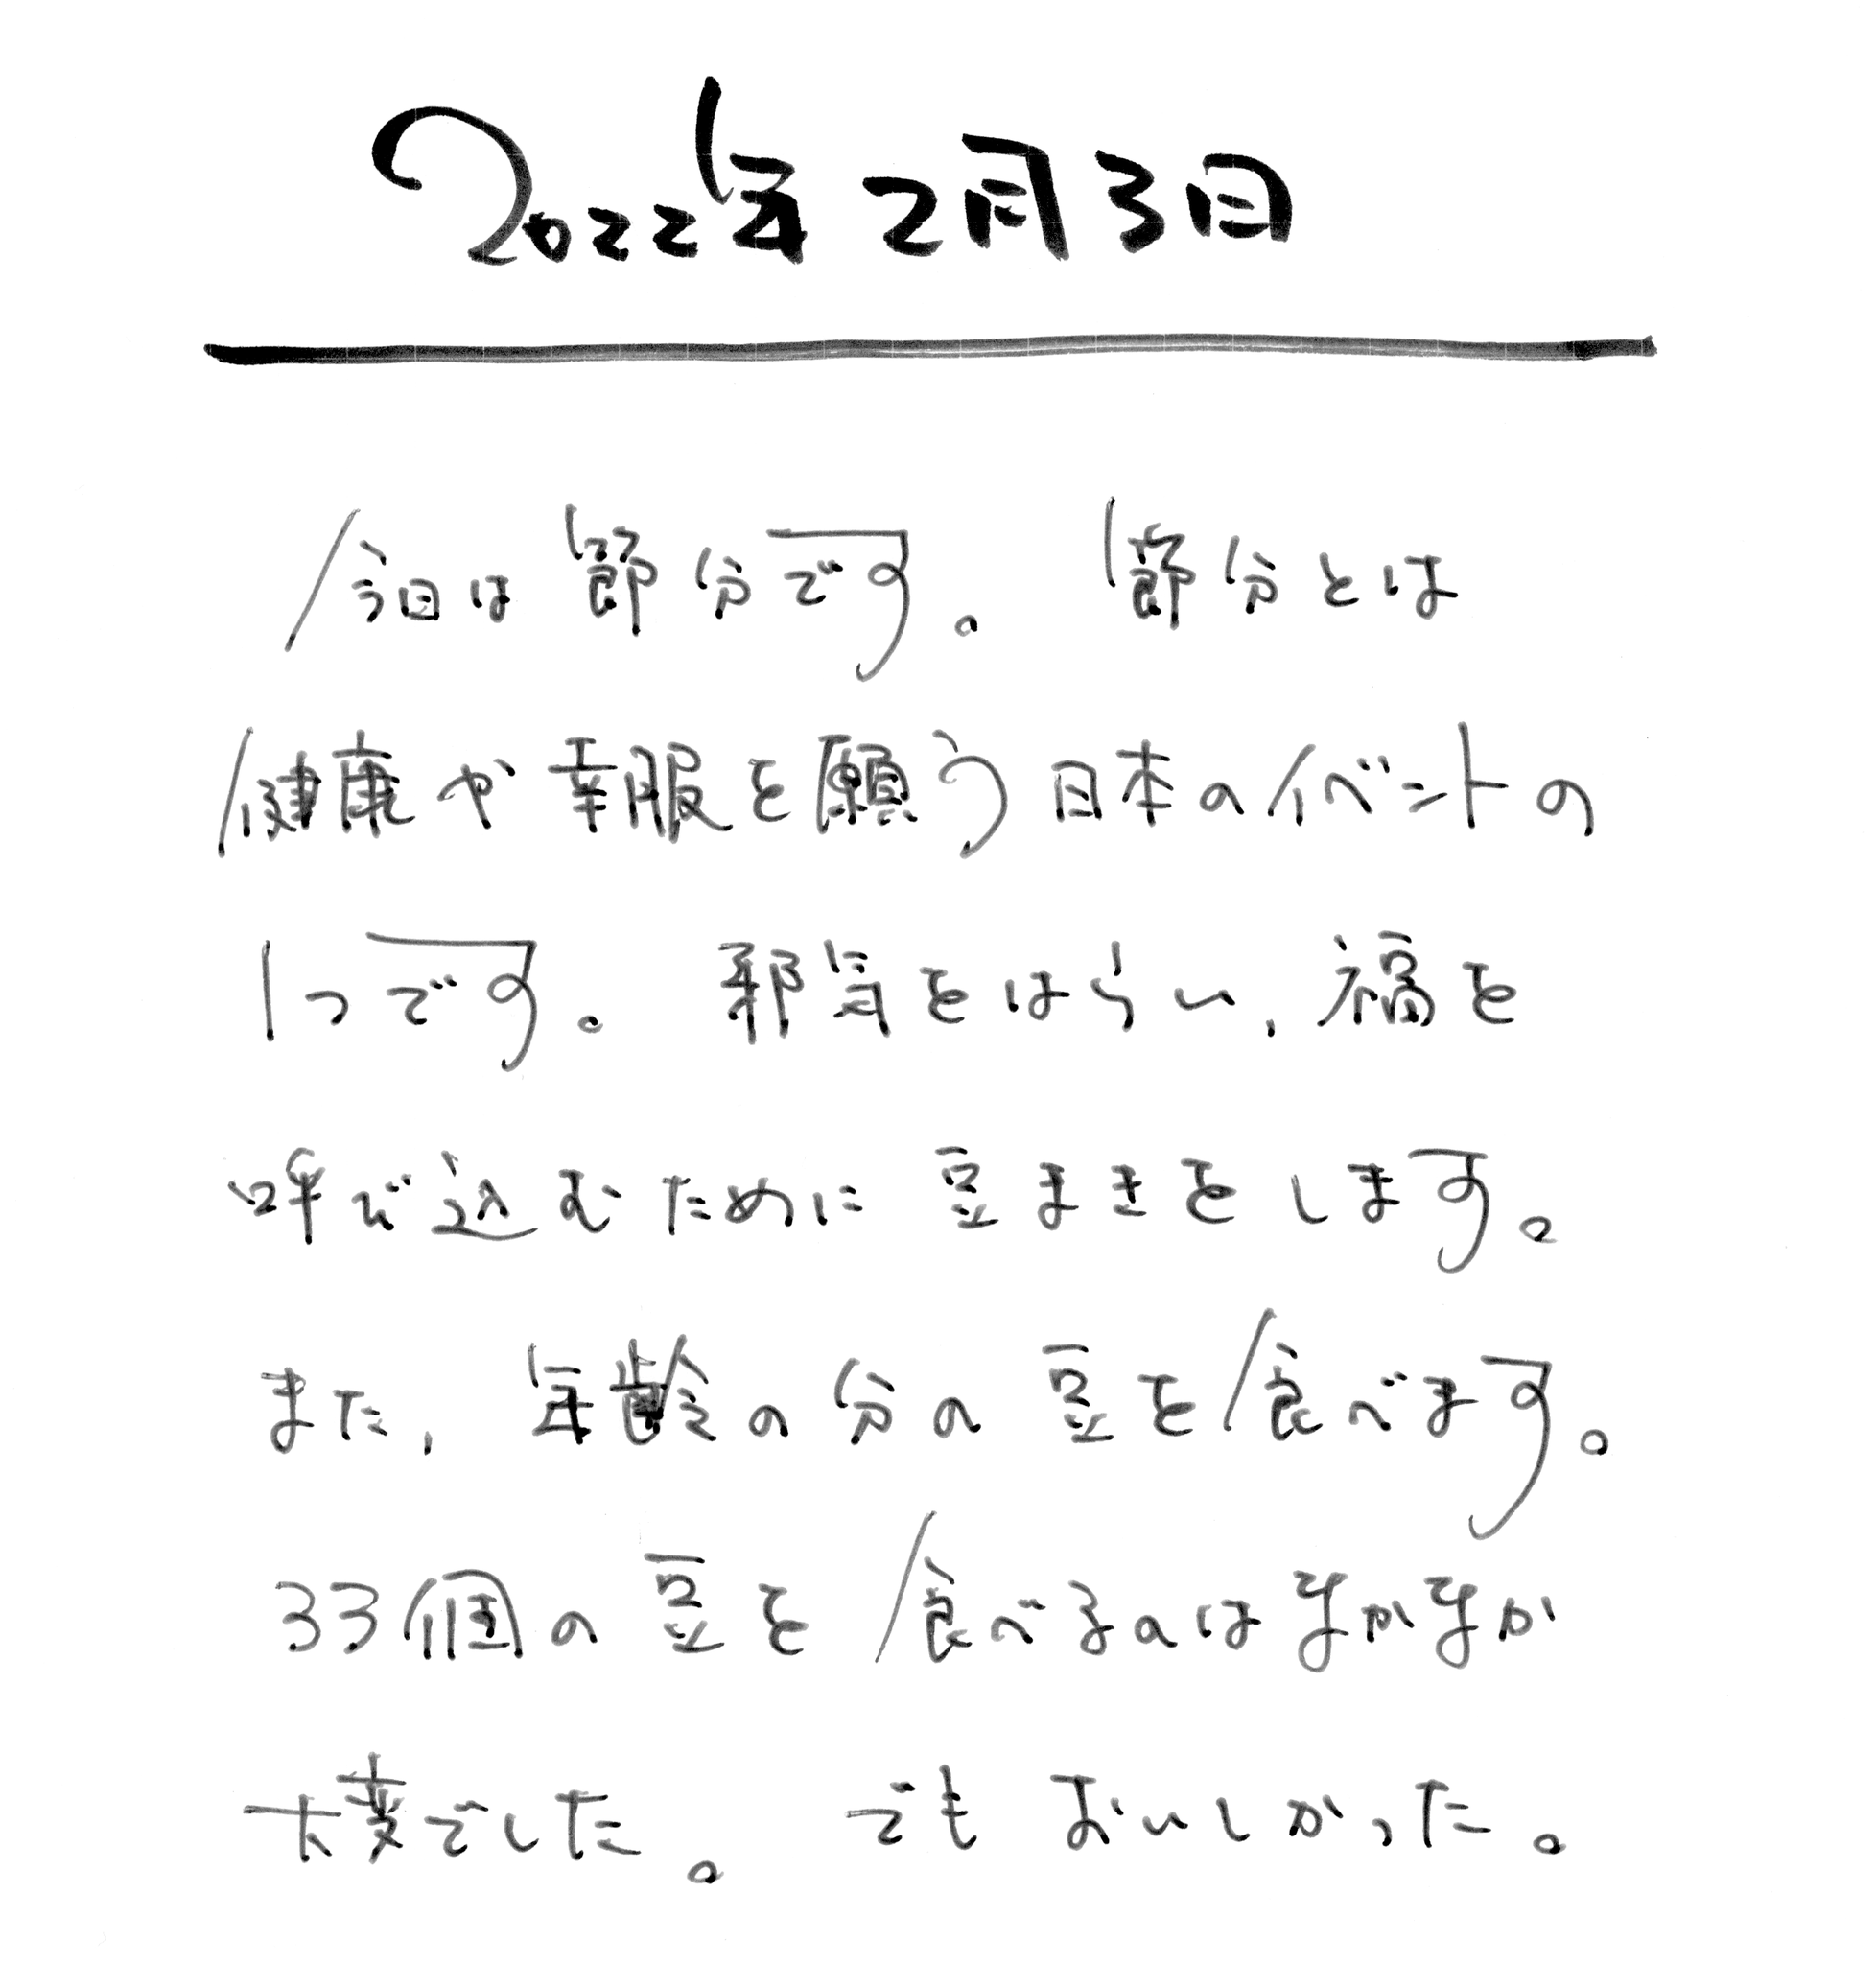 2022年2月3日
今日は節分です。 節分とは
健康や幸服を願う日本のイベントの
1つです。 邪気をはらい, 福を
呼び込むために 豆まきをします。
また, 年齢の分の豆を食べます。
33個の豆を食べるのはなかなか
大変でした。 でも おいしかった。